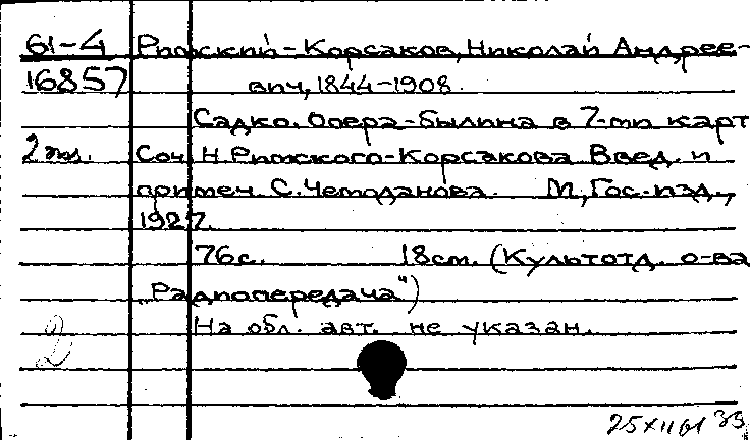 61-4 Римский-Корсаков, Николай Андрее-
16857 вич, 1844-1908.
Садко. Опера-былина в 7-ми карт
2 экз. Соч. Н. Римского-Корсакова Введ. и
примеч С. Чемоданова. М, Гос. изд.,
1927.
76с. 18см. (Культотд. о-ва
„Радиопередача")
На обл. авт. не указан.
2
25 XII 61